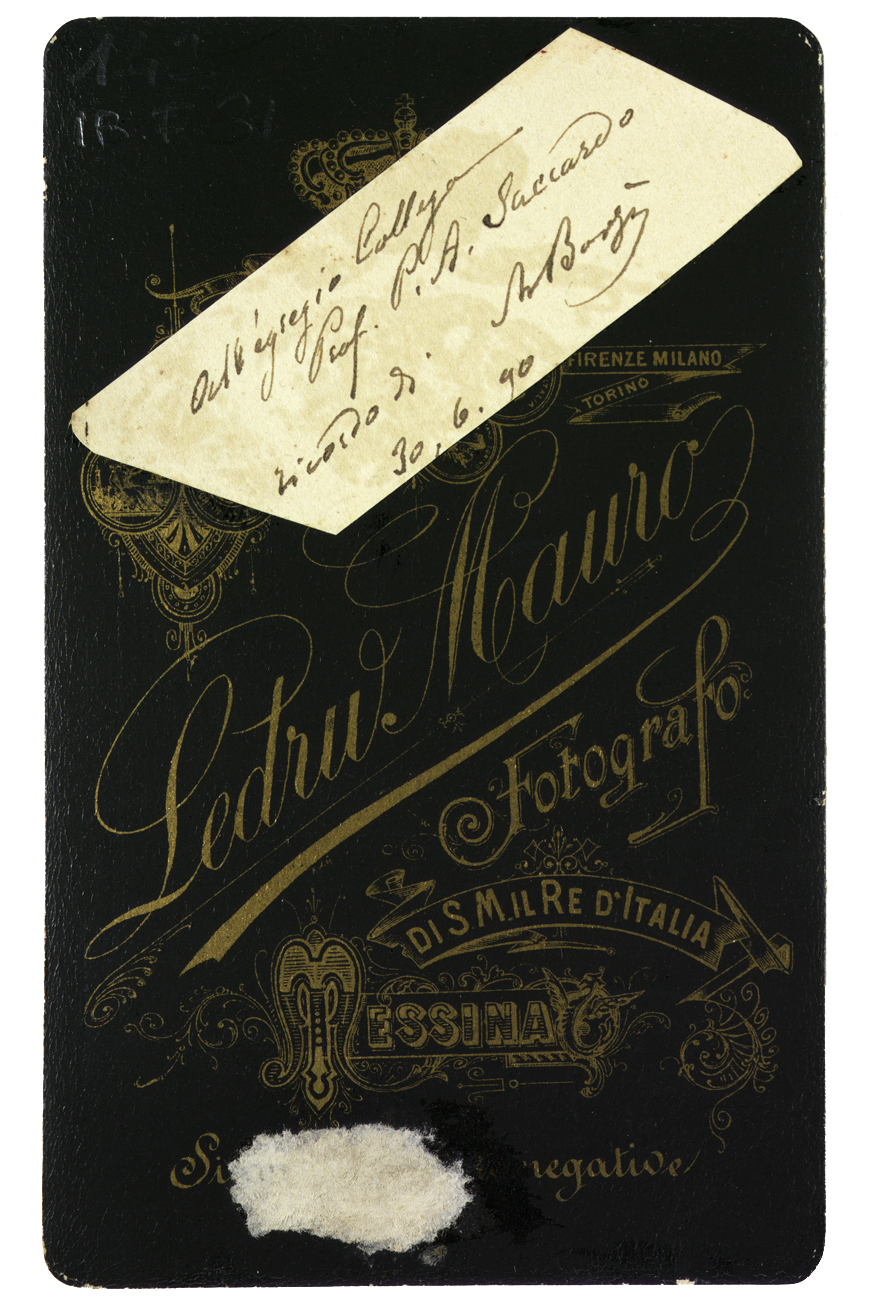 142
IB.F.31
All'egregio Collega
Prof. P. A. Saccardo
ricordo di ABorzì
30. 6. 90
FIRENZE MILANO
TORINO
ITALIA
Ledru Mauro
Fotografo
DI S.M. IL RE D'ITALIA
MESSINA
Si negative